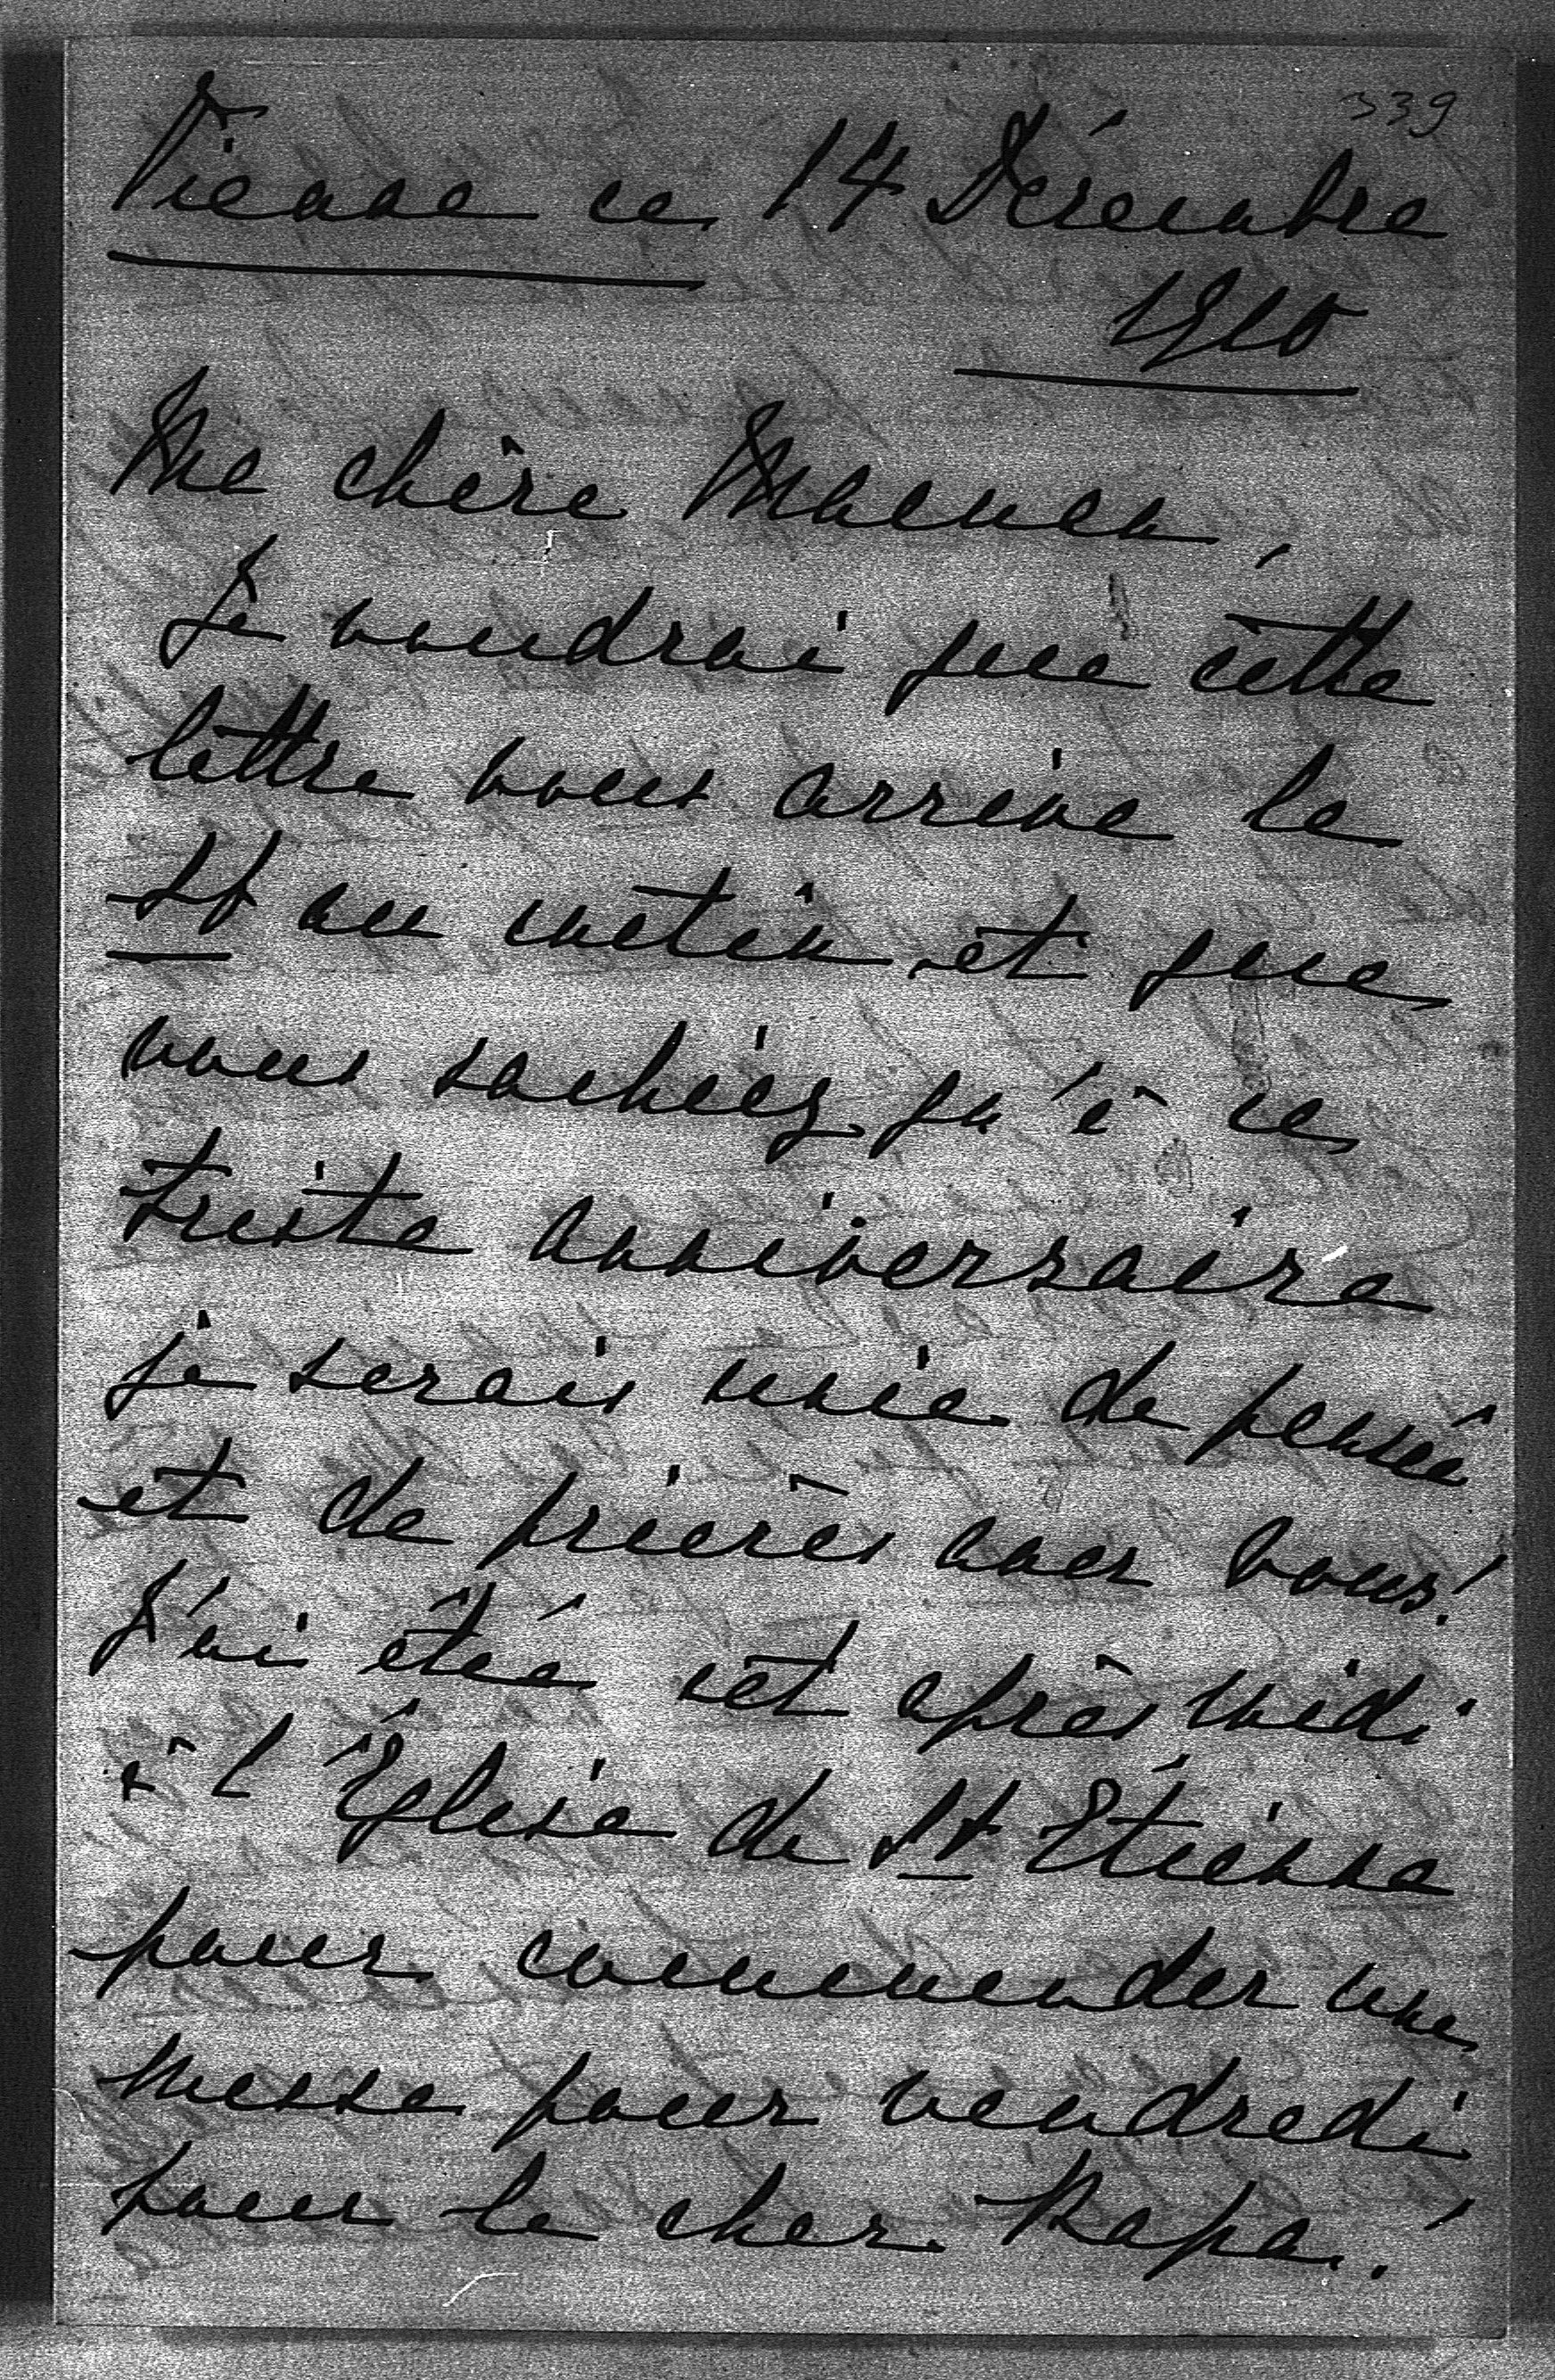 339
Vienne ce 14 Décembre
1910
Ma chère Maman,
Je voudrai que cette
lettre vous arrive le
16 au matin et que
vous sachiéz qu'à ce
triste anniversaire
je serais unie de pensée
et de prières avec vous!
J'ai étée cet après midi
à l'Église de St Etienne
pour commender une
messe pour vendredi
pour le cher Papa!